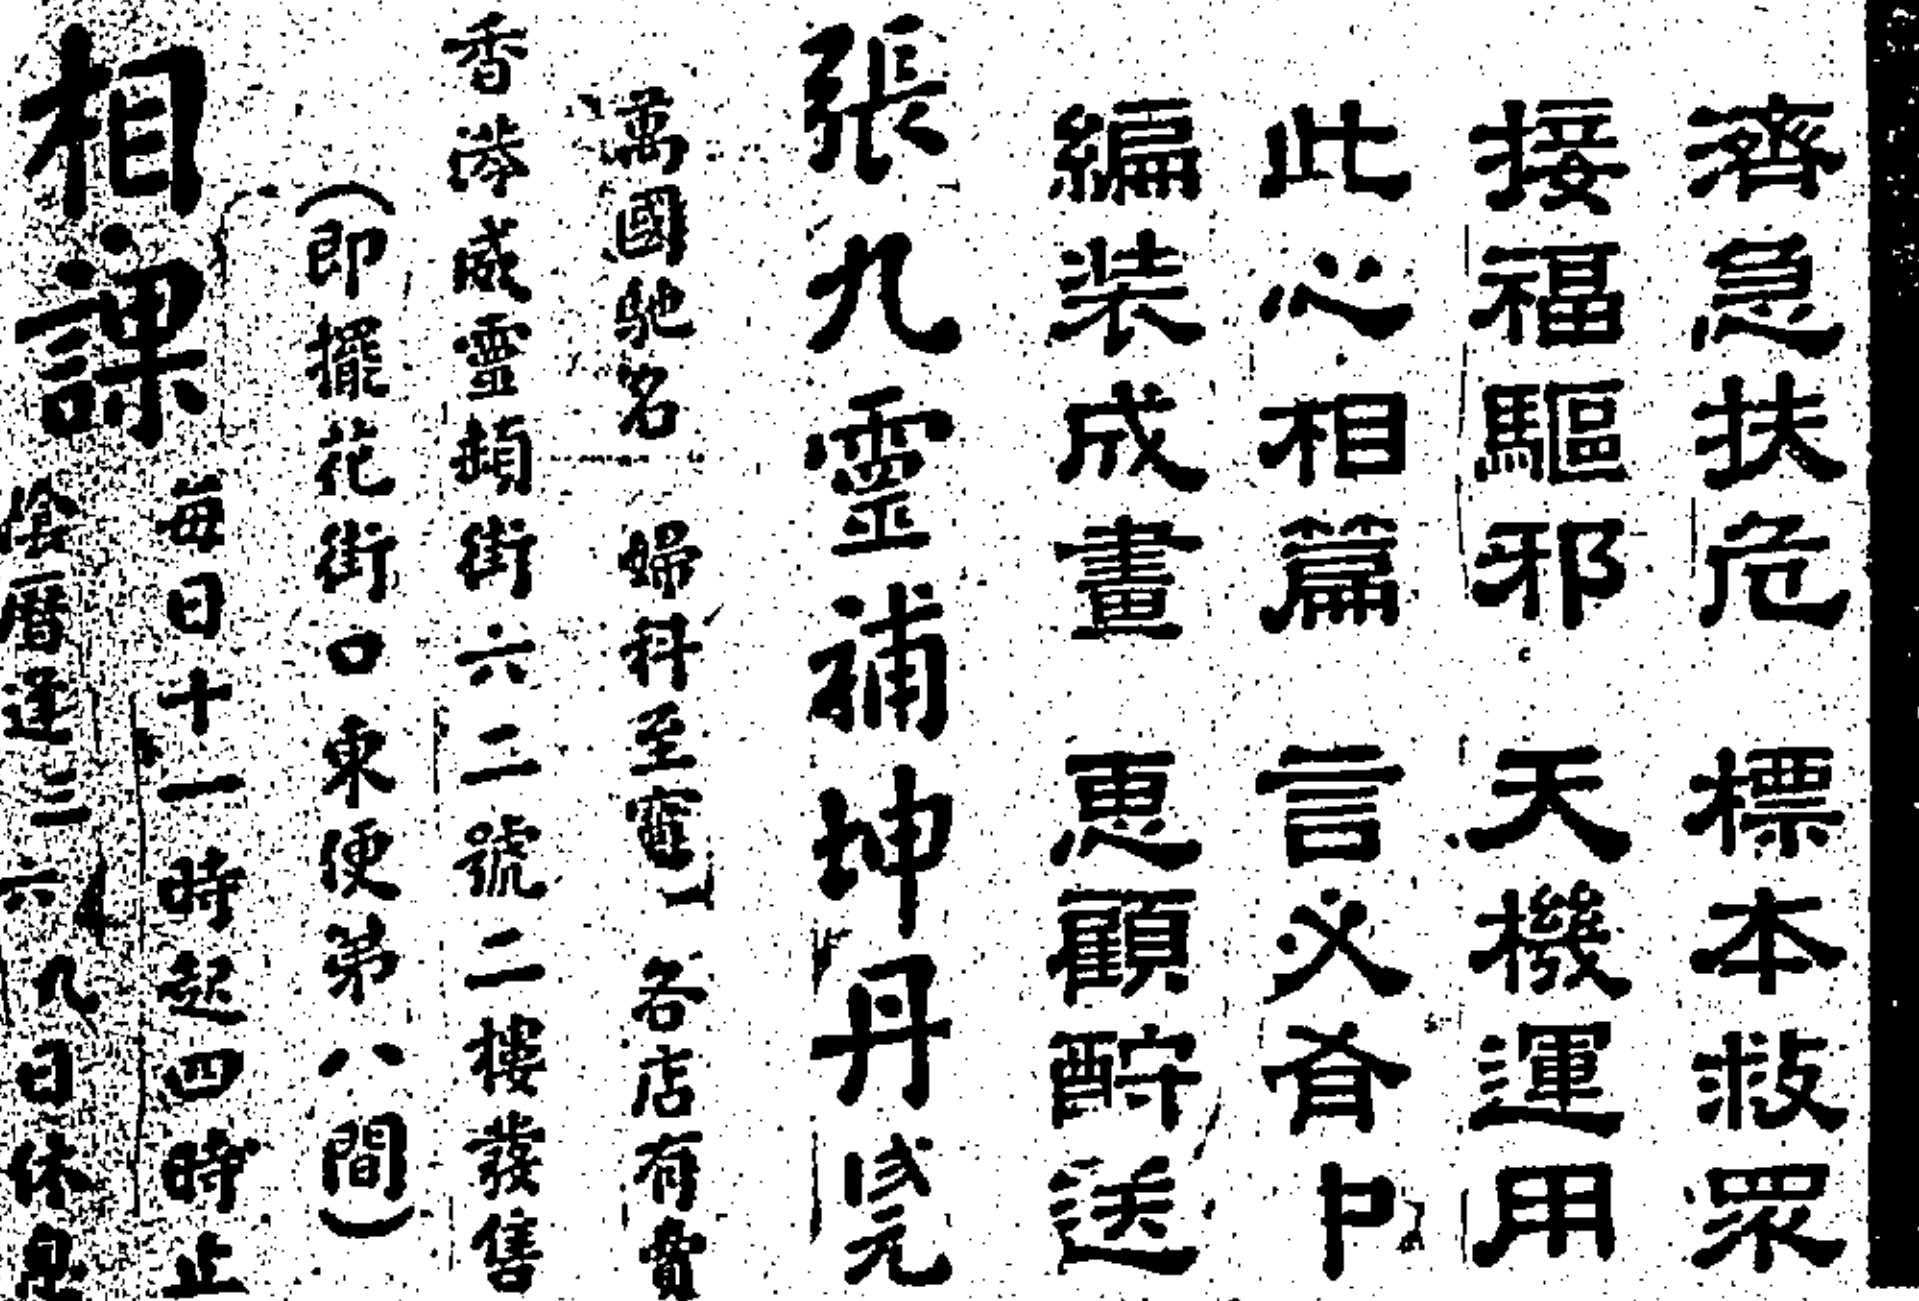 濟急扶危　標本救眾
接福驅邪　天機運用
此心相篇　言必有中
編裝成畫　惠顧酧送
張九靈補坤丹　元
萬國馳名　婦科至寶　各店有賣
香港威靈頓街六二號二樓發售
（即擺花街口東便第八間）
相課
每日十一時起四時止
陰曆逢三六九日休息